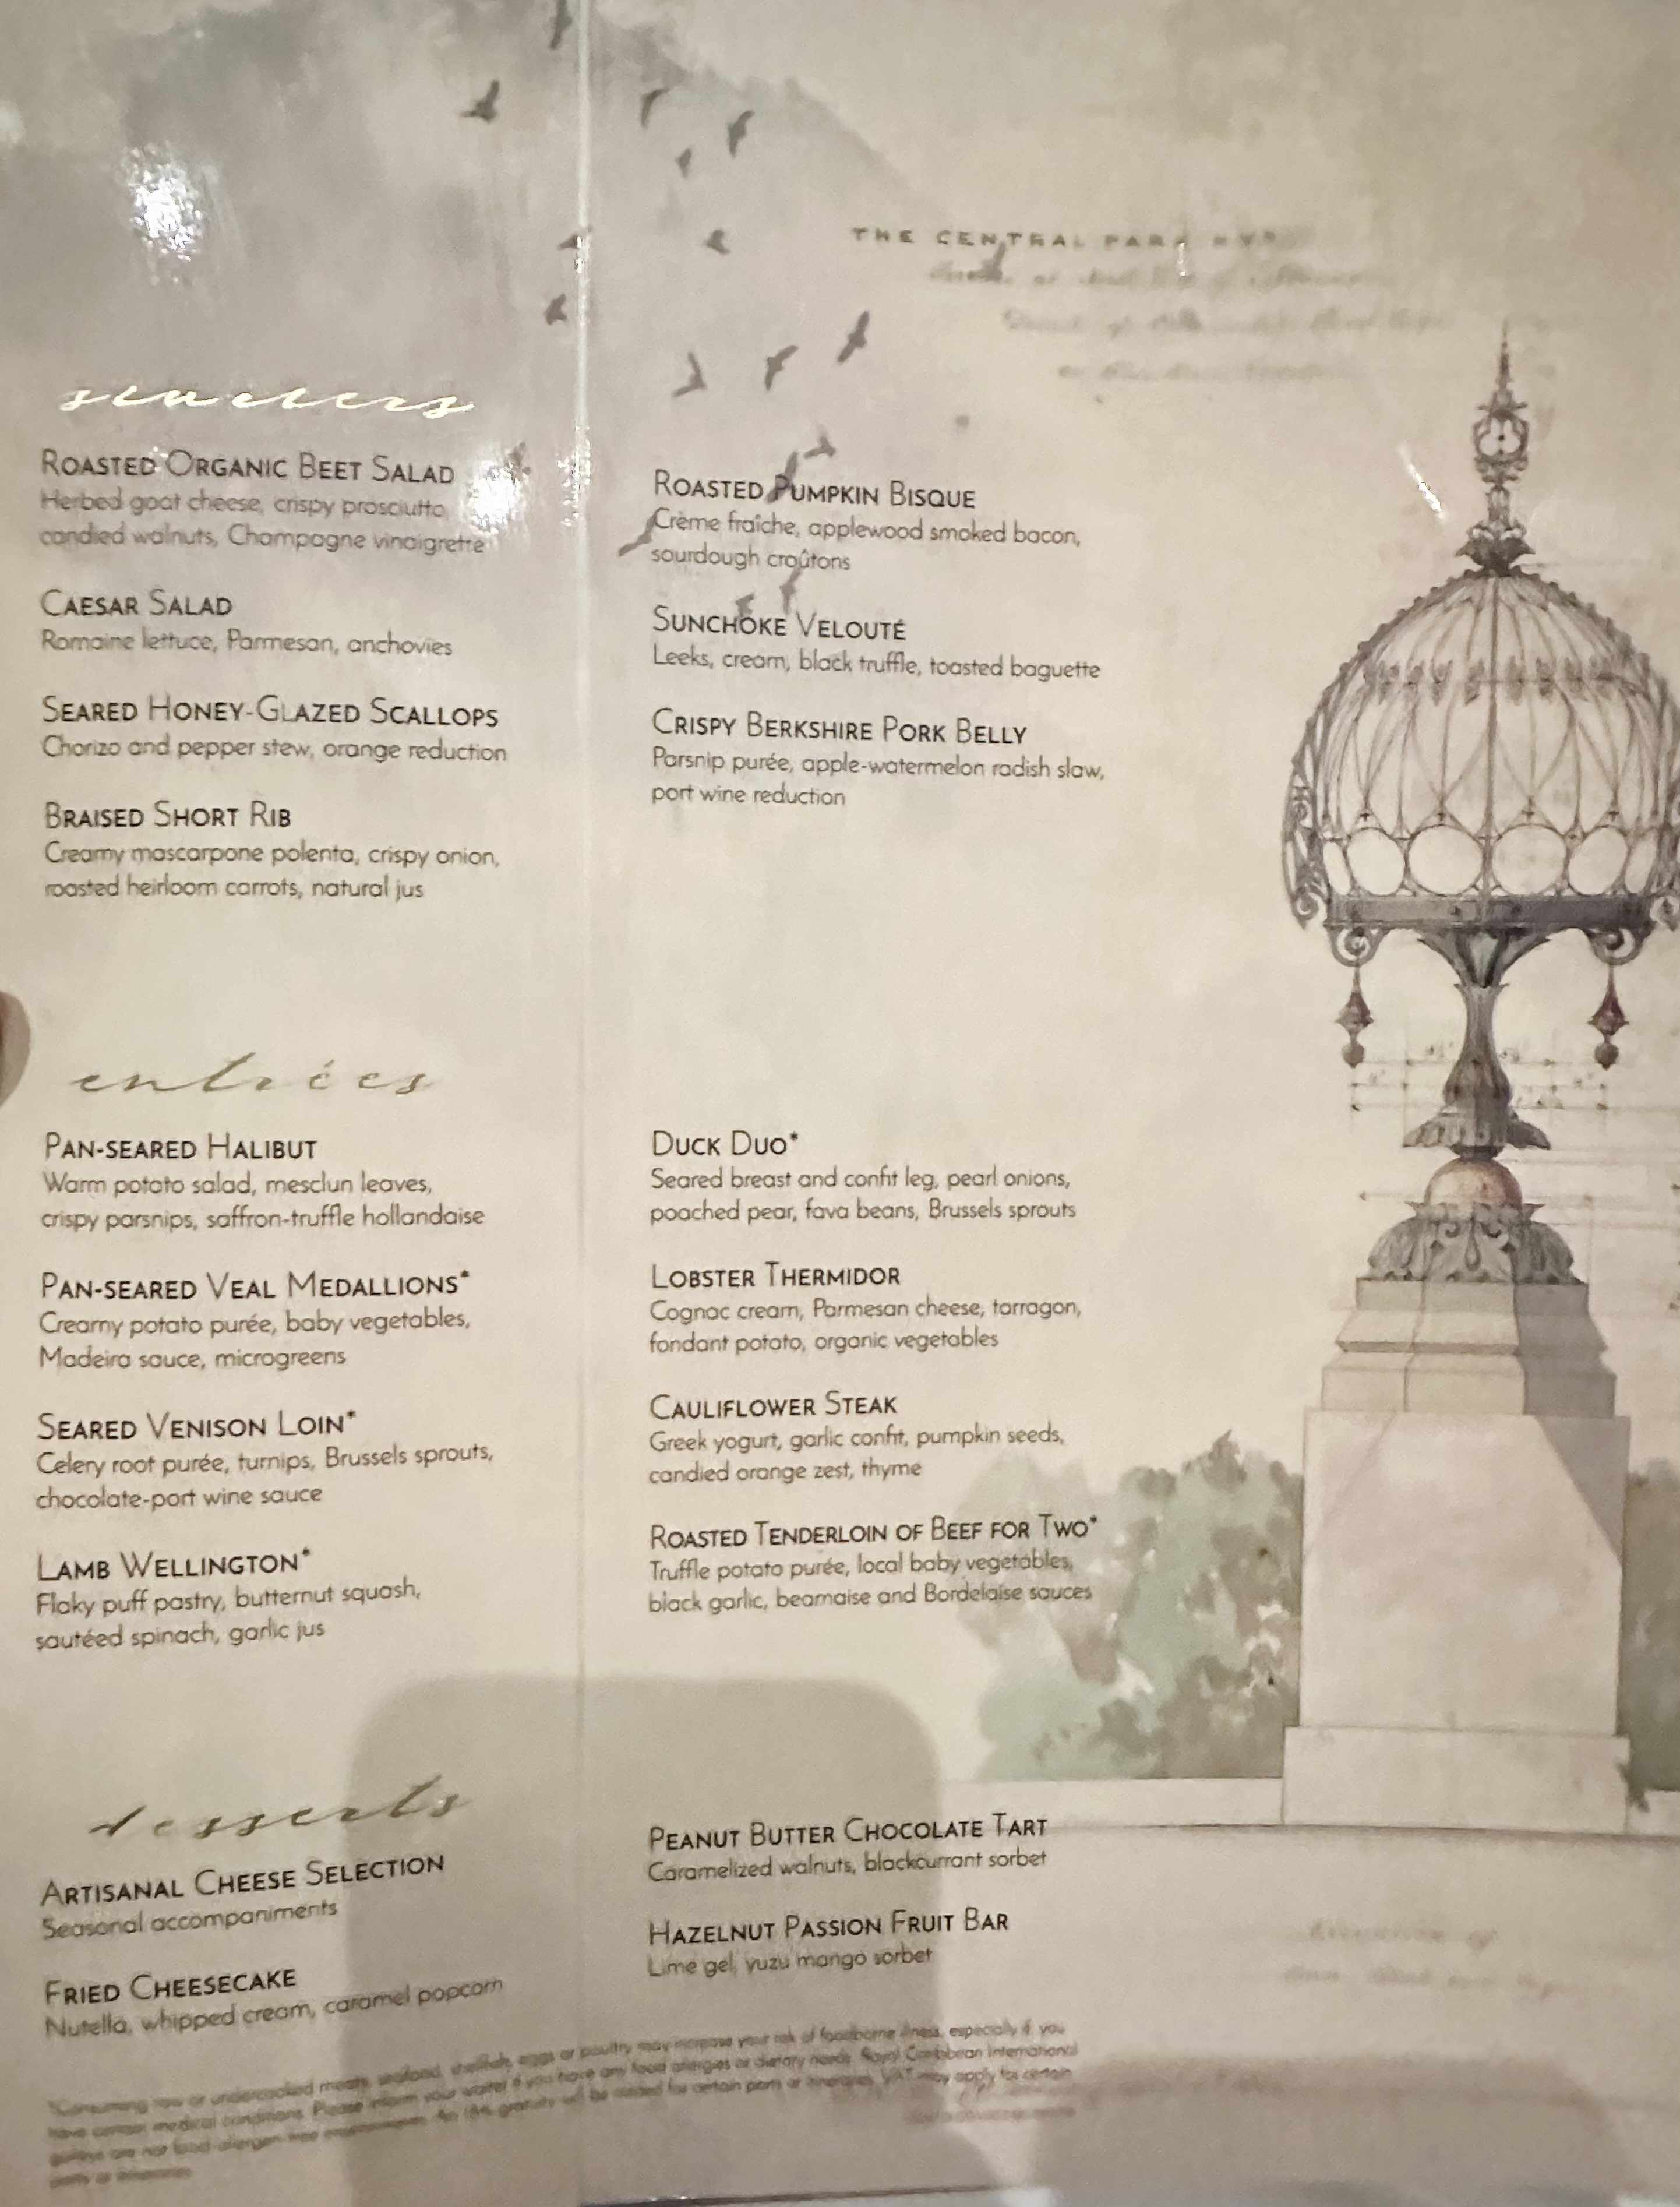 THE CENTRAL PARK
starters
ROASTED ORGANIC BEET SALAD
Herbed goat cheese, crispy prosciutto,
candied walnuts, Champagne vinaigrette
CAESAR SALAD
Romaine lettuce, Parmesan, anchovies
SEARED HONEY-GLAZED SCALLOPS
Chorizo and pepper stew, orange reduction
BRAISED SHORT RIB
Creamy mascarpone polenta, crispy onion,
roasted heirloom carrots, natural jus
ROASTED PUMPKIN BISQUE
Crème fraîche, applewood smoked bacon,
sourdough croûtons
SUNCHOKE VELOUTÉ
Leeks, cream, black truffle, toasted baguette
CRISPY BERKSHIRE PORK BELLY
Parsnip purée, apple-watermelon radish slaw,
port wine reduction
entrées
PAN-SEARED HALIBUT
Warm potato salad, mesclun leaves,
crispy parsnips, saffron-truffle hollandaise
PAN-SEARED VEAL MEDALLIONS*
Creamy potato purée, baby vegetables,
Madeira sauce, microgreens
SEARED VENISON LOIN*
Celery root purée, turnips, Brussels sprouts,
chocolate-port wine sauce
LAMB WELLINGTON*
Flaky puff pastry, butternut squash,
sautéed spinach, garlic jus
DUCK DUO*
Seared breast and confit leg, pearl onions,
poached pear, fava beans, Brussels sprouts
LOBSTER THERMIDOR
Cognac cream, Parmesan cheese, tarragon,
fondant potato, organic vegetables
CAULIFLOWER STEAK
Greek yogurt, garlic confit, pumpkin seeds,
candied orange zest, thyme
ROASTED TENDERLOIN OF BEEF FOR TWO*
Truffle potato purée, local baby vegetables,
black garlic, bearnaise and Bordelaise sauces
desserts
ARTISANAL CHEESE SELECTION
Seasonal accompaniments
FRIED CHEESECAKE
Nutella, whipped cream, caramel popcorn
PEANUT BUTTER CHOCOLATE TART
Caramelized walnuts, blackcurrant sorbet
HAZELNUT PASSION FRUIT BAR
Lime gel, yuzu mango sorbet
*Consuming raw or undercooked meats, seafood, shellfish, eggs or poultry may increase your risk of foodborne illness, especially if you
have certain medical conditions. Please inform your waiter if you have any food allergies or dietary needs. Royal Caribbean International
galleys are not food allergen-free environments. An 18% gratuity will be added for certain ports or itineraries. VAT may apply for certain
ports or itineraries.